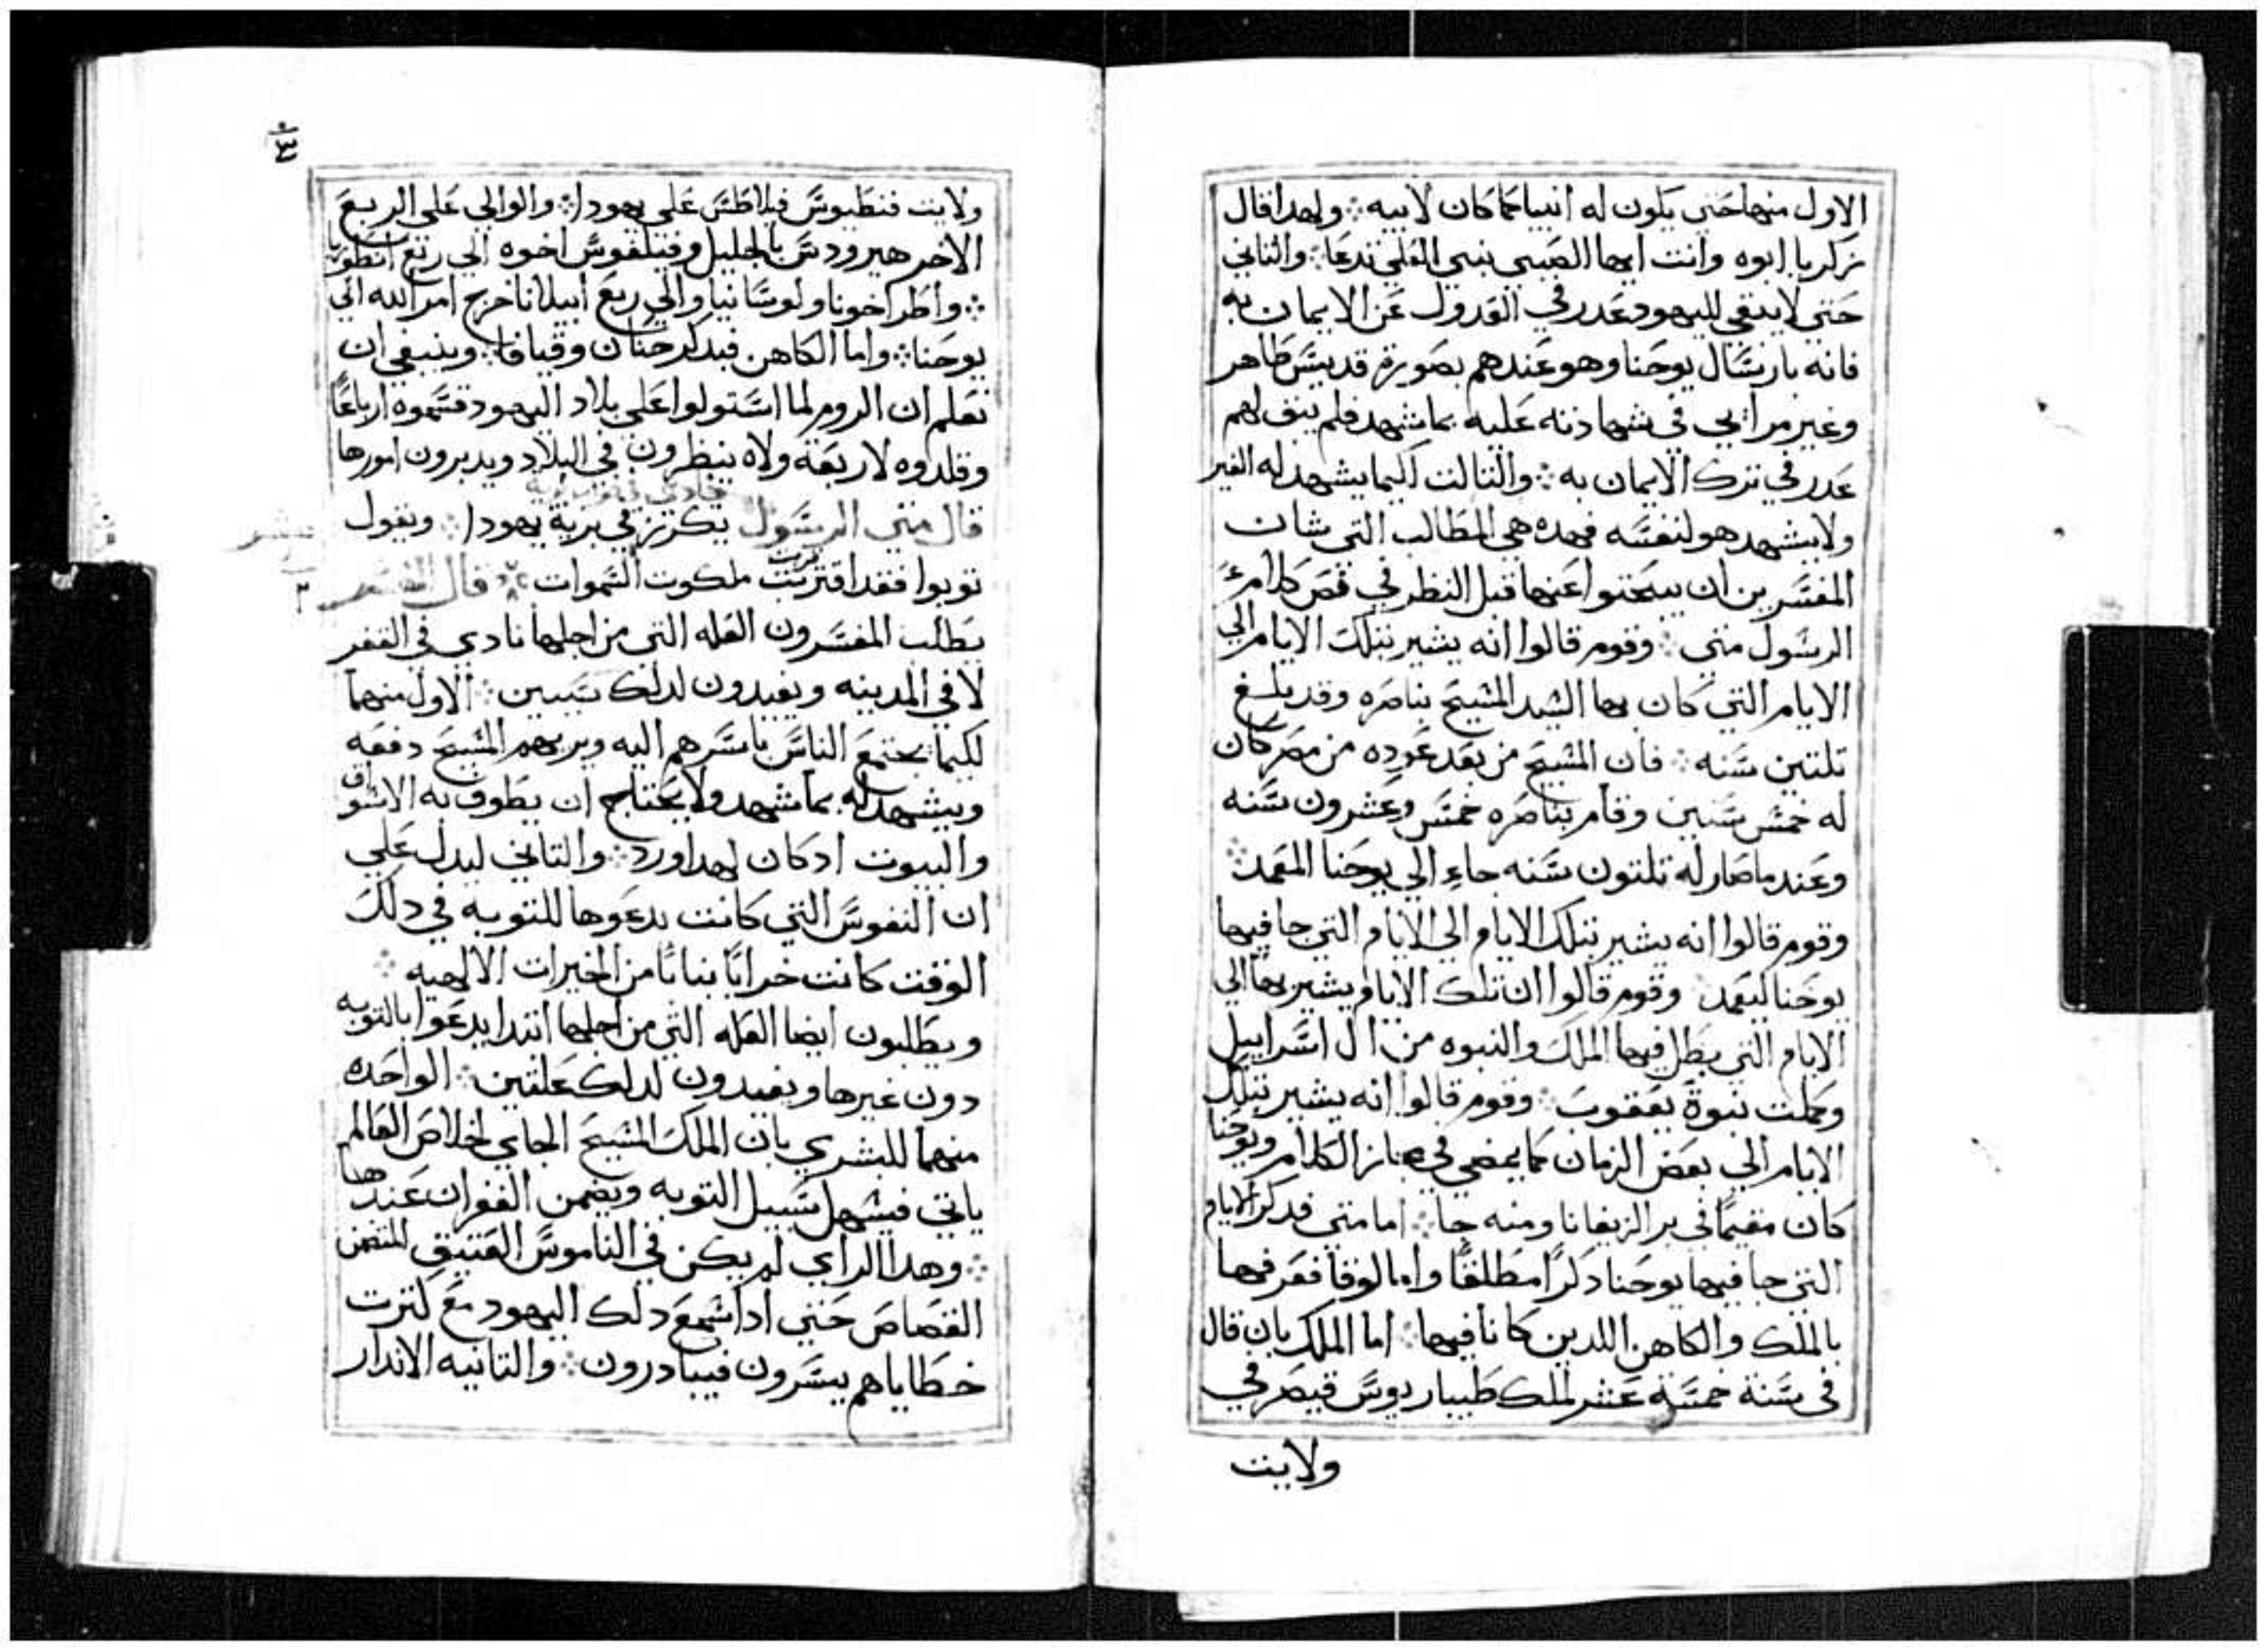 الاول منها حتي يكون له انبيا كما كان لابيه ۞ ولهدا قال
زكريا ابوه وانت ايها الصبي نبي العلي تدعا ۞ والتاني
حتي لا يبقي لليهود عدر في العدول عن الايمان به
فانه بارسال يوحنا وهو عندهم بصورة قديس طاهر
وغير مرايي في شهادته عليه بما شهد فلم يبق لهم
عدر في ترك الايمان به ۞ والتالت اكيما يشهد له الغير
ولا يشهد هو لنفسه فهده هي المطالب التي شان
المفسرين ان يبحتوا عنها قبل النظر في فص كلام
الرسول متي ۞ وقوم قالوا انه يشير بتلك الايام الي
الايام التي كان بها السيد المسيح بناصره وقد بلغ
تلتين سنه ۞ فان المسيح من بعد عوده من مصر كان
له خمس سنين وقام بناصره خمس وعشرون سنه
وعند ما صار له تلتون سنه جاء الي يوحنا المعمد ۞
وقوم قالوا انه يشير بتلك الايام الي الايام التي جا فيها
يوحنا ليعمد ۞ وقوم قالوا ان تلك الايام يشير بها الي
الايام التي بطل فيها الملك والنبوه من ال اسراييل
وكملت نبوة يعقوب ۞ وقوم قالوا انه يشير بتلك
الايام الي بعض الزمان كما يمضي في مجاز الكلام ويوحنا
كان مقيما في بر الزيفانا ومنه جا ۞ اما متي فدكر الايام
التي جا فيها يوحنا دكرًا مطلقًا واما لوقا فعرفها
بالملك والكاهن اللدين كانا فيها ۞ اما الملك بان قال
في سنة خمسة عشر لملك طيباريوس قيصر في
ولايت
٣
ولايت فنطيوس فيلاطس علي يهودا ۞ والوالي علي الربع
الاخر هيرودس بالجليل وفيلفوس اخوه الي ربع انطوريا
۞ واطراخونا ولوسانيا والي ربع ابيلانا خرج امر الله الي
يوحنا ۞ واما الكاهن فبدكر حنان وقيافا ۞ وينبغي ان
تعلم ان الروم لما استولوا علي بلاد اليهود قسموه ارباعًا
وقلدوه لاربعة ولاه ينظرون في البلاد ويدبرون امورها
قال متي الرسول يكرز في برية يهودا ۞ ويقول
توبوا فقد اقتربت ملكوت السموات ۞ قال المفسر
يطلب المفسرون العله التي من اجلها نادي في القفر
لا في المدينه ويفيدون لدلك سببين ۞ الاول منهما
لكيما يجتمع الناس باسرهم اليه ويريهم المسيح دفعه
ويشهد له بما شهد ولا يحتاج ان يطوف به الاسواق
والبيوت ادكان لهدا ورد ۞ والتاني ليدل علي
ان النفوس التي كانت يدعوها للتوبه في دلك
الوقت كانت خرابًا بياتًا من الخيرات الالهيه ۞
ويطلبون ايضا العله التي من اجلها ابتدا يدعوا بالتوبه
دون غيرها ويفيدون لدلك علتين ۞ الواحده
منهما للبشري بان الملك المسيح الجاي لخلاص العالم
ياتي فيسهل سبيل التوبه ويضمن الغفران عندها
۞ وهدا الراي لم يكن في الناموس العتيق المتضمن
القصاص حتي اداسمع دلك اليهود مع كترت
خطاياهم يسرون فيبادرون ۞ والتانيه الاندار